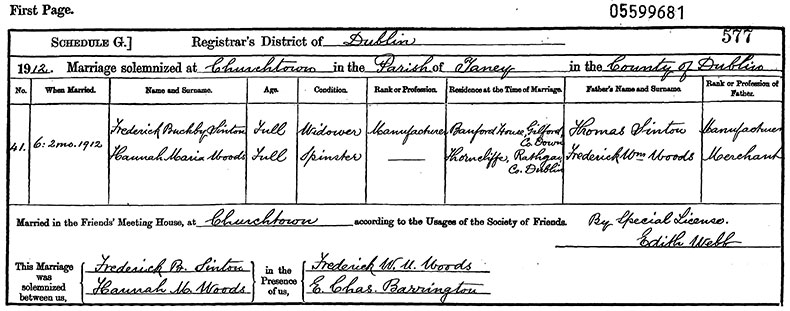 First Page.
05599681
577
SCHEDULE G.] Registrar's District of Dublin
1912. Marriage solemnized at Churchtown in the Parish of Taney in the County of Dublin
No. When Married. Name and Surname. Age. Condition. Rank or Profession. Residence at the Time of Marriage. Father's Name and Surname. Rank or Profession of Father.
41. 6: 2mo. 1912
Frederick Buckby Sinton Full Widower Manufacturer Banford House, Gilford, Co. Down Thomas Sinton Manufacturer
Hannah Maria Woods Full Spinster — Thorncliffe, Rathgar, Co. Dublin Frederick Wm Woods Merchant
Married in the Friends' Meeting House, at Churchtown according to the Usages of the Society of Friends. By Special License.
Edith Webb
This Marriage was solemnized between us,
Frederick B. Sinton
Hannah M. Woods
in the Presence of us,
Frederick W. U. Woods
E. Chas. Barrington